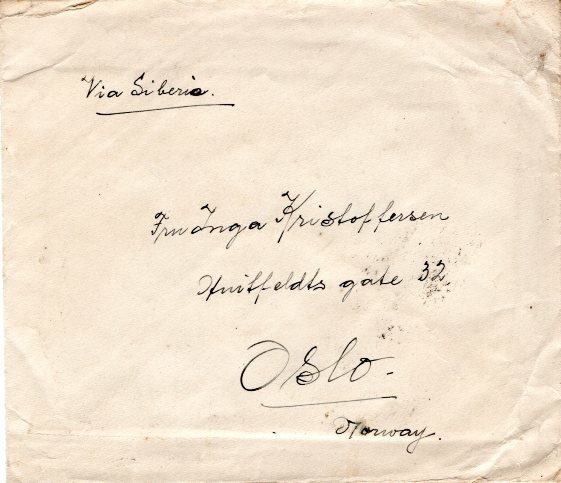 Via Siberia.
Fru Inga Kristoffersen
Huitfeldts gate 32
Oslo.
Norway.